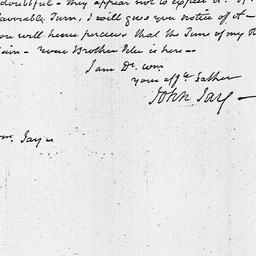 doubtful - they appear not to expect it. If
favorable Turn, I will give you notice of it -
you will hence perceive that the Time of my R
- your Brother Peter is here -
I am Dr. Wm
your afft. Father
John Jay -
Wm. Jay